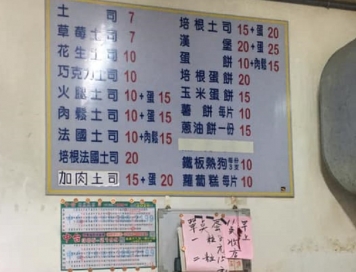 土司 7
草莓土司 7
花生土司 10
巧克力土司 10
火腿土司 10+蛋 15
肉鬆土司 10+蛋 15
法國土司 10+肉鬆 15
培根法國土司 20
加肉土司 15+蛋 20
培根土司 15+蛋 20
漢堡 20+蛋 25
蛋餅 10+肉鬆 15
培根蛋餅 20
玉米蛋餅 15
薯餅 每片 10
蔥油餅一份 15
鐵板熱狗 10
蘿蔔糕 每片 10